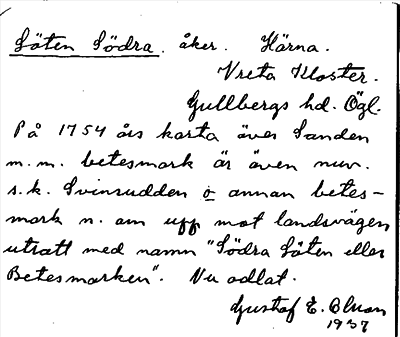 Söten Södra. åker. Härna.
Vreta Kloster.
Gullbergs hd. Ögl.
På 1754 års karta över Sanden
m.m. betesmark är även nuv.
s.k. Svinsudden o annan betes-
mark n. om upp mot landsvägen
utsatt med namn "Södra Söten eller
Betesmarken". Nu odlat.
Gustaf E. Blman
1937